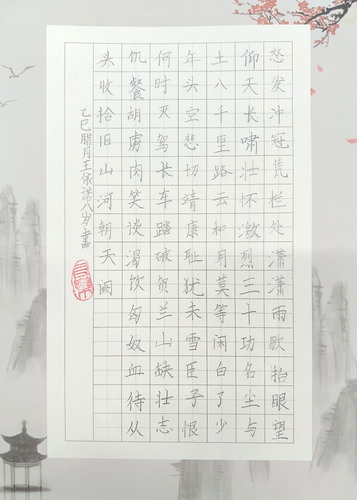 怒发冲冠凭栏处潇潇雨歇抬眼望
仰天长啸壮怀激烈三十功名尘与
土八千里路云和月莫等闲白了少
年头空悲切靖康耻犹未雪臣子恨
何时灭驾长车踏破贺兰山缺壮志
饥餐胡虏肉笑谈渴饮匈奴血待从
头收拾旧山河朝天阙
乙巳腊月王依诺八岁书